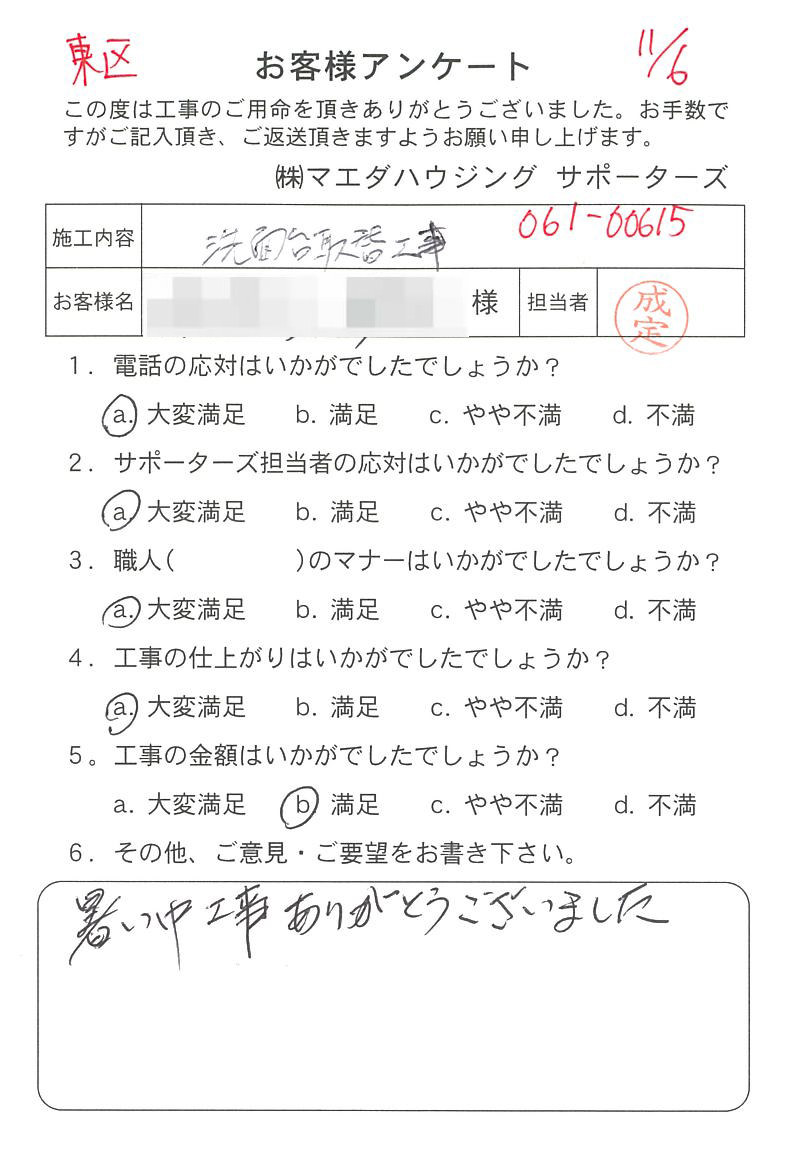 東区
お客様アンケート
11/6
この度は工事のご用命を頂きありがとうございました。お手数で
すがご記入頂き、ご返送頂きますようお願い申し上げます。
㈱マエダハウジング サポーターズ
061-00615
施工内容 洗面台取替工事
お客様名 様 担当者 成定
1. 電話の応対はいかがでしたでしょうか？
a. 大変満足 b. 満足 c. やや不満 d. 不満
2. サポーターズ担当者の応対はいかがでしたでしょうか？
a. 大変満足 b. 満足 c. やや不満 d. 不満
3. 職人( )のマナーはいかがでしたでしょうか？
a. 大変満足 b. 満足 c. やや不満 d. 不満
4. 工事の仕上がりはいかがでしたでしょうか？
a. 大変満足 b. 満足 c. やや不満 d. 不満
5。工事の金額はいかがでしたでしょうか？
a. 大変満足 b. 満足 c. やや不満 d. 不満
6. その他、ご意見・ご要望をお書き下さい。
暑い中工事ありがとうございました